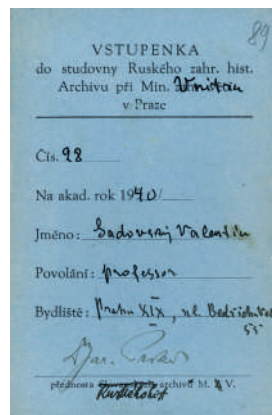 89
VSTUPENKA
do studovny Ruského zahr. hist.
Archivu při Min. Vnitra
v Praze
Čís. 98
Na akad. rok 1940/
Jméno: Sadovský Valentin
Povolání: professor
Bydliště: Praha XIX, ul.
55
přednosta archivů M. V.